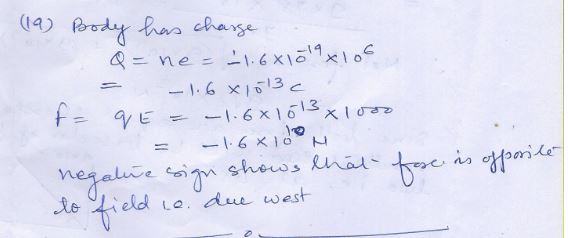 (19) Body has charge
Q = ne = -1.6 × 10⁻¹⁹ × 10⁶
= -1.6 × 10⁻¹³ C
f = qE = -1.6 × 10⁻¹³ × 1000
= -1.6 × 10⁻¹⁰ N
negative sign shows that force is opposite
to field i.e. due west